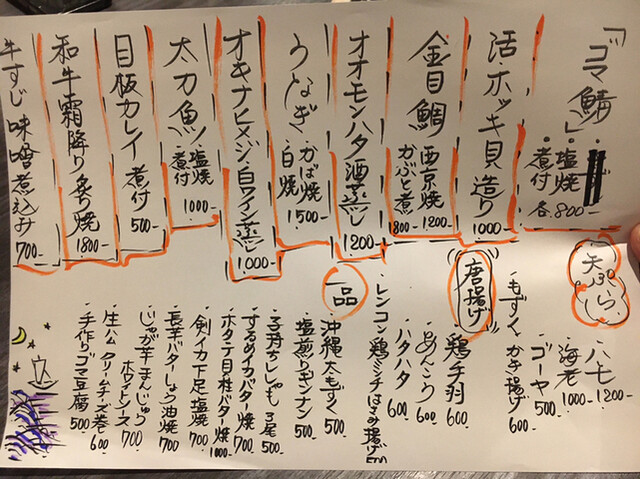 「ゴマ鯖」
・塩焼
・煮付 各800-
活・ホッキ貝・造り 1000-
金目鯛
西京焼 1200-
かぶと煮 800-
オオモンハタ酒蒸し 1200-
うなぎ
・かば焼
・白焼 1500-
オキナヒメジ・白ワイン蒸し 1.000-
太刀魚
塩焼
煮付 1000-
目板カレイ 煮付 500-
和牛霜降り炙り焼 1800-
牛すじ味噌煮込み 700-
天ぷら
・ハモ 1200-
・海老 1000-
・ゴーヤ 500-
・もずくかき揚げ 600-
唐揚げ
・鶏手羽 600
・あんこう 600-
・ハタハタ 600
・レンコン鶏ミンチはさみ揚げ 500
一品
・沖縄太もずく 500
・塩煎りギンナン 500-
・子持ちししゃも 3尾 500
・するめイカバター焼 700
・ホタテ貝柱バター焼 1000-
・剣イカ下足塩焼 700
・長芋バターしょう油焼 700
・じゃが芋まんじゅう ホワイトソース 700
・生ハムクリームチーズ巻 600
・手作りゴマ豆腐 500